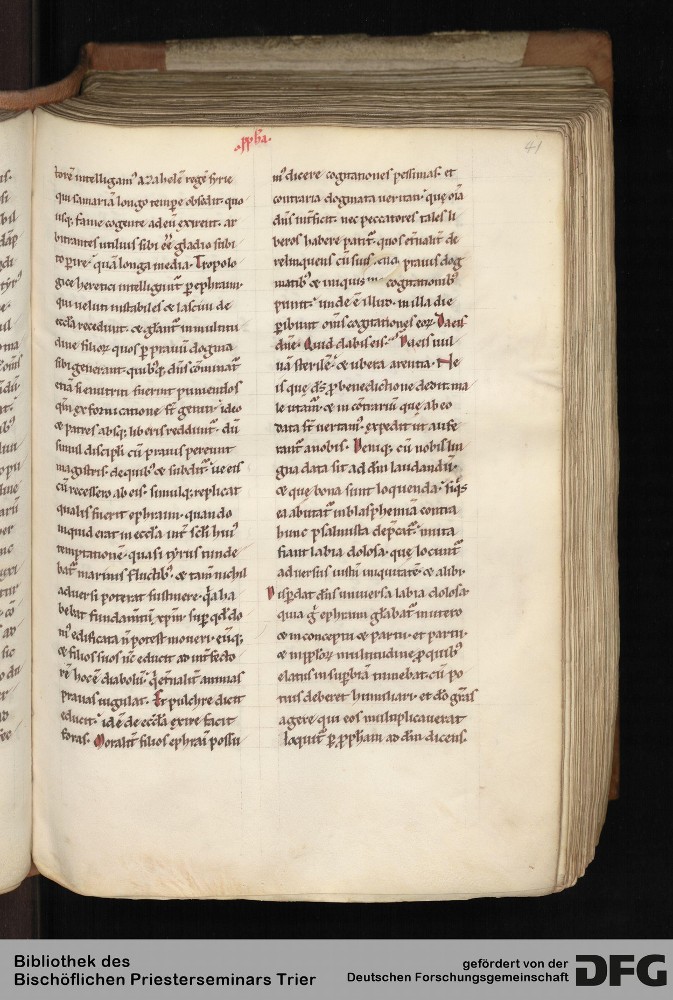 .pph̅a.
41
torē intelligam᷒ azahelē regē syrie
qui samariā longo tempe obsedit. quo
usq; fame cogente ad eū exirent. ar
bitrantes utilius sibi eē gladio subi
to perire. quā longa inedia. Tropolo
gice heretici intelligunt᷑ p ephraim.
qui uelut instabiles & lasciui de
eccła recedunt. & głant᷑ in multitu
dine filiorꝝ quos p prauū dogma
sibi generant. quibꝰ dn̄s cōminat᷑
etiā si enutriti fuerint puniendos
qm̄ ex fornicatione st̄ geniti. ideo
& patres absq; liberis reddunt᷑. dū
simul discipłi cū prauis pereunt
magistris. de quibꝰ & subdit᷑. ue eis
cū recessero ab eis. simulq; replicat
qualis fuerit ephraim. quando
inquid erat in eccła int̄ scłi huiꝰ
temptatione. quasi tyrus tunde
bat᷑ marinis fluctibꝰ. & tam̄ nichil
aduersi poterat sustinere. q̄a ha
bebat fundam̄tū xp̄m. sup qd̄ do
mꝰ edificata n̄ potest moueri. eūq;
& filios suos nc̄ educit ad int̄fecto
rē hoc ē diabolū. q̄ et̄nalit᷑ animas
prauas iugulat. Et pulchre dicit
educit. id ē de eccła exire facit
foras. Moralit᷑ filios ephraī possu
mꝰ dicere cogitationes pessimas. et
contraria dogmata ueritati. que oīa
dn̄s int̄ficit. nec peccatores tales li
beros habere patit᷑. quos et̄nalit᷑ de
relinquens cū suis prauis dog
matibꝰ & iniquis cogitationibꝰ
punit. unde ē illud. in illa die
peribunt om̄s cogitationes eorꝝ. Da eis
dn̄e. Quid dabis eis. Da eis uul
uā sterilē. & ubera arentia. Ne
is que ds̄ p benedictione dedit. ma
le utam᷑. & in cōtrariū que ab eo
data st̄ uertam᷑. expedit ut aufe
rant᷑ a nobis. Deniq; cū nobis lin
gua data sit ad dn̄m laudandū.
& que bona sunt loquenda. siq̄s
ea abutat᷑ in blasphemiā contra
hunc psalmista depcat᷑. muta
fiant labia dolosa. que locunt᷑
aduersus iustū iniquitatē. & alibi.
Disperdat dn̄s uniuersa labia dolosa.
quia g̊ ephraim głabat᷑ in utero
& in conceptu & partu. et partu
& in ipsorꝝ multitudine p quibꝰ
elatus in supbiā tumebat. cū po
tius deberet humiliari. et do gr̄as
agere qui eos multiplicauerat
loquit᷑ p pph̅am ad dn̄m dicens.
Bibliothek des
Bischöflichen Priesterseminars Trier
gefördert von der
Deutschen Forschungsgemeinschaft
DFG